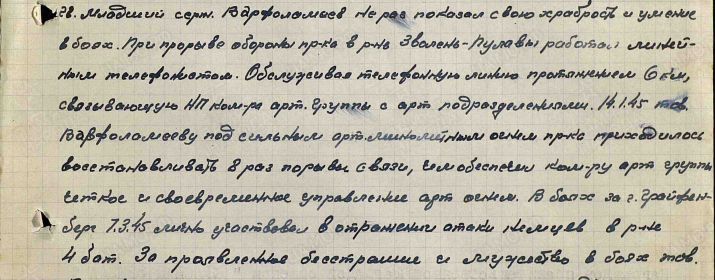 тов. Младший серж. Варфоламеев не раз показал свою храбрость и умение
в боях. При прорыве обороны пр-ка в р-не Зволень-Пулавы работал линей-
ным телефонистом. Обслуживая телефонную линию протяжением 6 км,
связывающую НП ком-ра арт. группы с арт подразделениями. 14.1.45 тов.
Варфоламееву под сильным арт. минометным огнем пр-ка приходилось
восстанавливать 8 раз порывы связи, чем обеспечил ком-ру арт группы
четкое и своевременное управление арт огнем. В боях за г. Грайфен-
берг 7.3.45 лично участвовал в отражении атаки немцев в р-не
4 бат. За проявленные бесстрашие и мужество в боях тов.